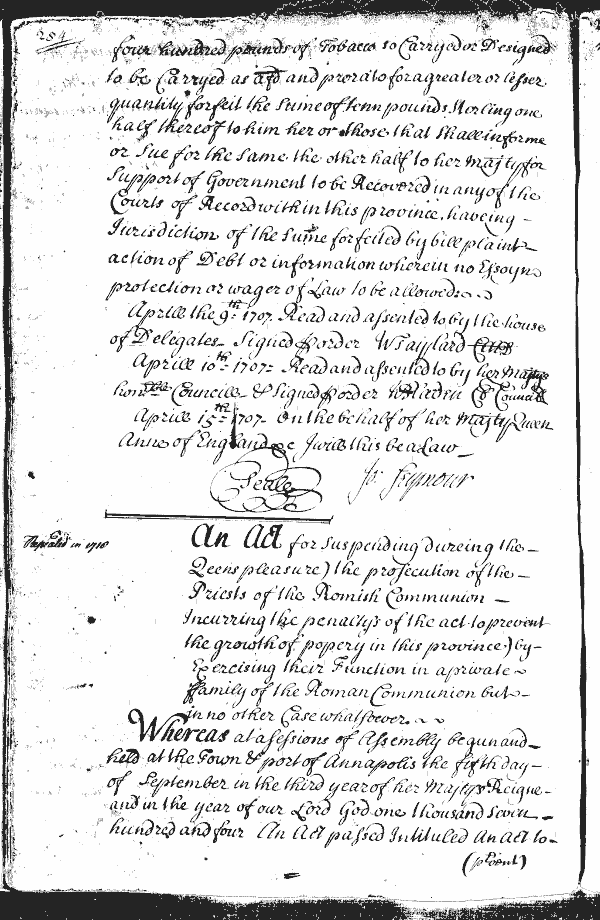 254
four hundred pounds of Tobacco so Carryed or Designed
to be Carryed as afd and prorato for a greater or lesser
quantity forfeit the Sume of tenn pounds Sterling one
half thereof to him her or those that Shall informe
or Sue for the Same the other half to her Majtys for
Support of Government to be Recovered in any of the
Courts of Record within this province, haveing -
Jurisdiction of the Sume forfeited by bill plaint -
action of Debt or information wherein no Essoyn
protection or wager of Law to be allowed
Aprill the 9th 1707. Read and assented to by the house
of Delegates - Signed order W Taylard
Aprill 10th 1707 - Read and assented to by her Majtys
honble Councill - & Signed order W Bladen Council
Aprill 15th 1707 - On the behalf of her Majty Queen
Anne of England &c I will this be a Law -
Seale Jo: Seymour
Repealed in 1718
An Act for Suspending dureing the -
Qeens pleasure) the prosecution of the -
Priests of the Romish Communion -
Incurring the penaltys of the act to prevent
the growth of popery in this province) by -
Exercising their Function in a private
family of the Roman Communion but -
in no other Case whatsoever.
Whereas at a Sessions of Assembly begun and -
held at the Town & port of Annapolis the fifth day -
of September in the third year of her Majtys Reigne -
and in the year of our Lord God one thousand Seven -
hundred and four An Act passed Intituled An Act to -